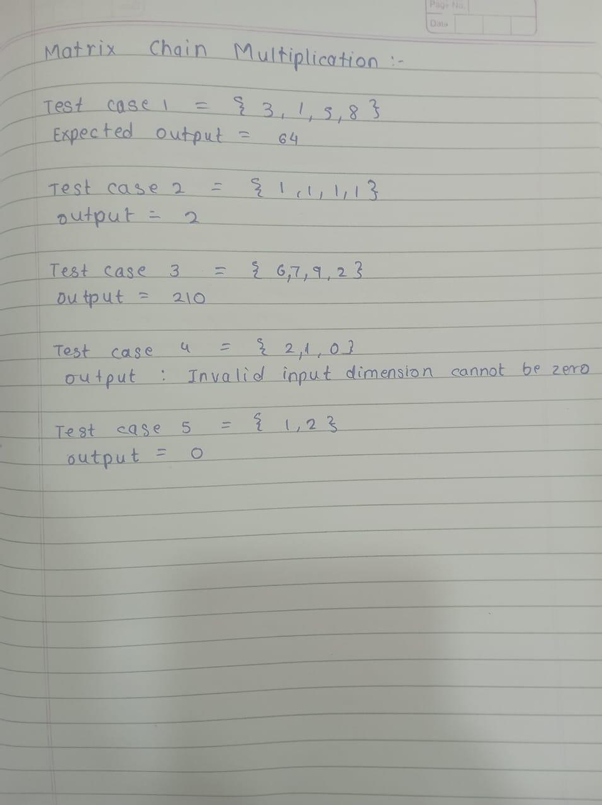 Page No.
Date
Matrix Chain Multiplication :-
Test case 1 = { 3, 1, 5, 8 }
Expected output = 64
Test case 2 = { 1, 1, 1, 1 }
output = 2
Test case 3 = { 6, 7, 9, 2 }
output = 210
Test case 4 = { 2, 1, 0 }
output : Invalid input dimension cannot be zero
Test case 5 = { 1, 2 }
output = 0